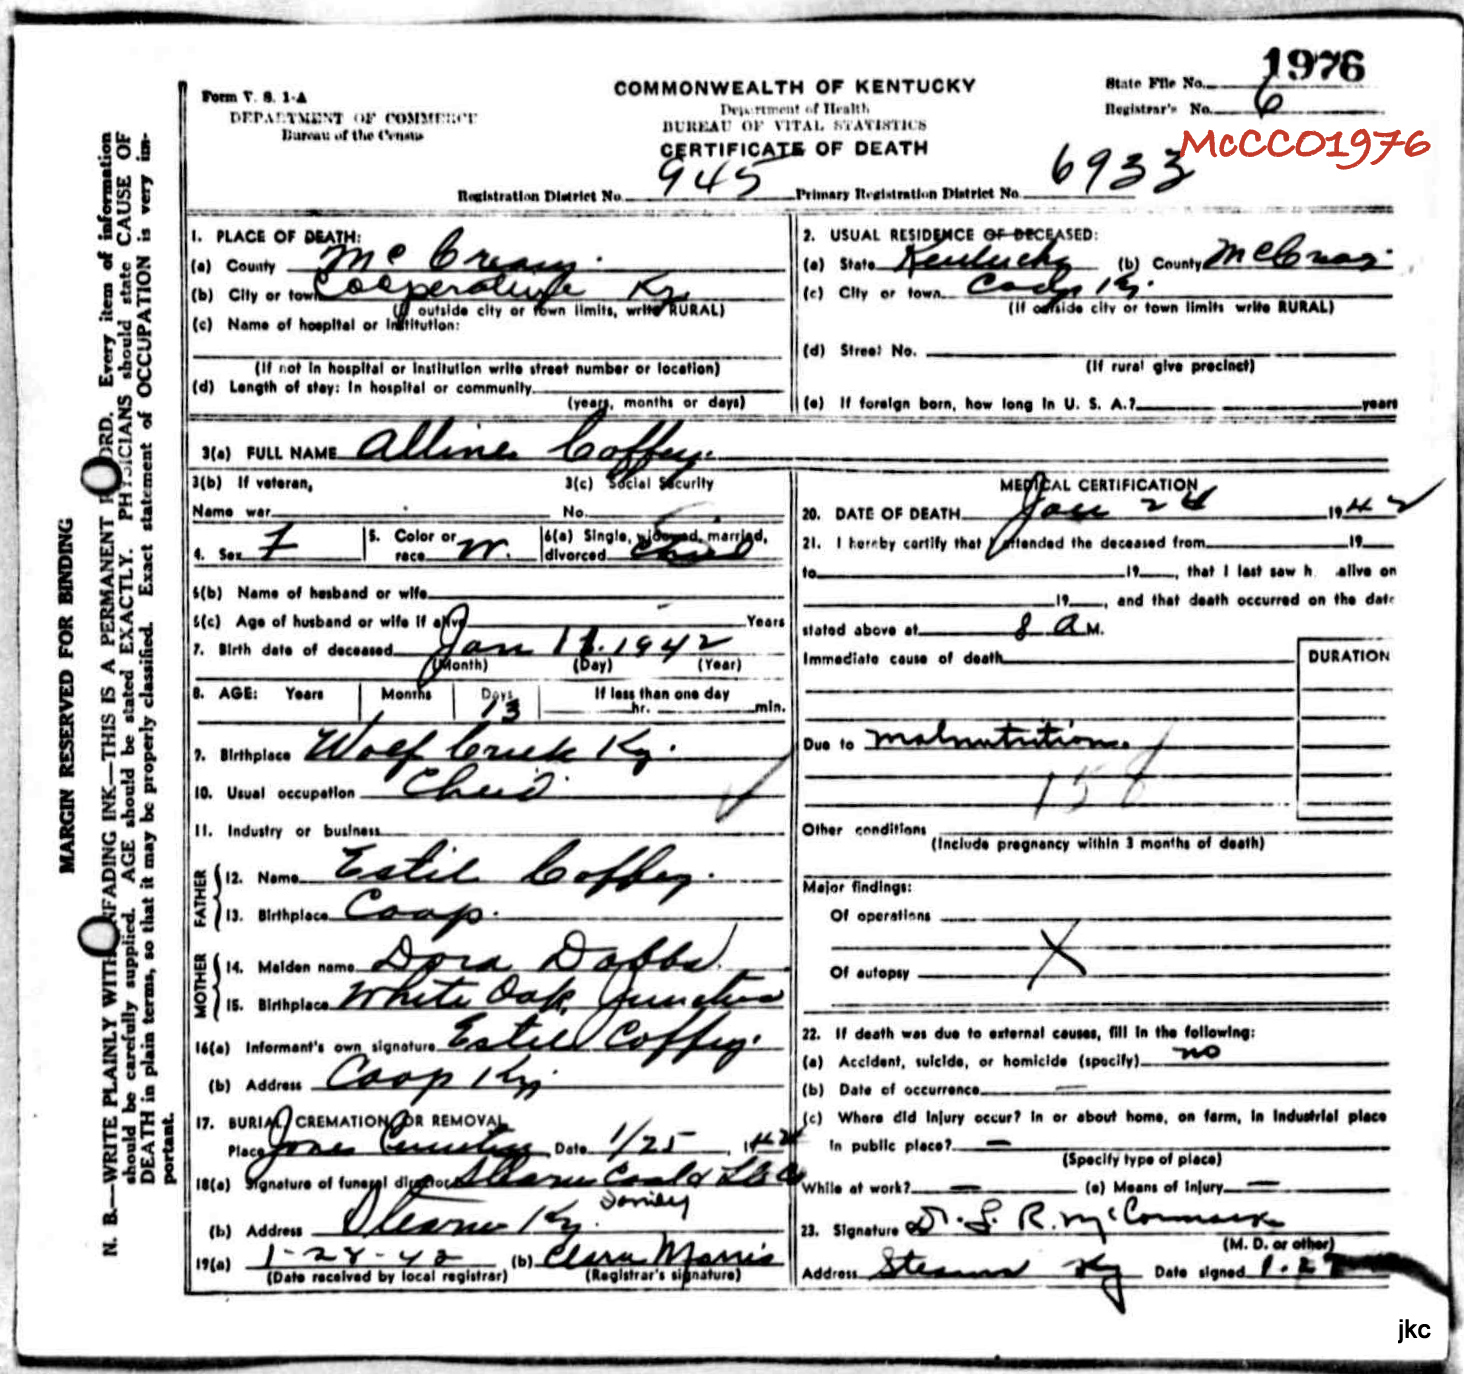 1976
Form V. S. 1-A
COMMONWEALTH OF KENTUCKY
State File No.
DEPARTMENT OF COMMERCE
Department of Health
Registrar's No. 6
Bureau of the Census
BUREAU OF VITAL STATISTICS
McCCO1976
CERTIFICATE OF DEATH
Registration District No. 945 Primary Registration District No. 6933
MARGIN RESERVED FOR BINDING
N. B.—WRITE PLAINLY WITH UNFADING INK—THIS IS A PERMANENT RECORD. Every item of information
should be carefully supplied. AGE should be stated EXACTLY. PHYSICIANS should state CAUSE OF
DEATH in plain terms, so that it may be properly classified. Exact statement of OCCUPATION is very im-
portant.
1. PLACE OF DEATH:
(a) County Mc Creary.
(b) City or town Cooperative Ky.
(If outside city or town limits, write RURAL)
(c) Name of hospital or institution:
(If not in hospital or institution write street number or location)
(d) Length of stay: In hospital or community
(years, months or days)
2. USUAL RESIDENCE OF DECEASED:
(a) State Kentucky (b) County McCreary
(c) City or town Ky.
(If outside city or town limits write RURAL)
(d) Street No.
(If rural give precinct)
(e) If foreign born, how long in U. S. A.? years
3(a) FULL NAME Alline Coffey.
3(b) If veteran, 3(c) Social Security
Name war No.
4. Sex F 5. Color or race W. 6(a) Single, widowed, married, divorced Child
6(b) Name of husband or wife
6(c) Age of husband or wife if alive Years
7. Birth date of deceased Jan 11. 1942
(Month) (Day) (Year)
8. AGE: Years Months Days If less than one day
13 hr. min.
9. Birthplace Wolf Creek Ky.
10. Usual occupation Child
11. Industry or business
FATHER
12. Name Estil Coffey.
13. Birthplace Coop.
MOTHER
14. Maiden name Dora Dobbs
15. Birthplace White Oak Junction
16(a) Informant's own signature Estil Coffey.
(b) Address Coop Ky.
17. BURIAL, CREMATION OR REMOVAL
Place Jones Cemetery Date 1/25, 1942
18(a) Signature of funeral director Stearns Coal & L Co
Family
(b) Address Stearns Ky.
19(a) 1-28-42 (b) Clara Morris
(Date received by local registrar) (Registrar's signature)
MEDICAL CERTIFICATION
20. DATE OF DEATH Jan 24 1942
21. I hereby certify that I attended the deceased from 19
to 19, that I last saw h alive on
19, and that death occurred on the date
stated above at 8 A M.
Immediate cause of death DURATION
Due to malnutrition.
158
Other conditions
(Include pregnancy within 3 months of death)
Major findings:
Of operations
Of autopsy
22. If death was due to external causes, fill in the following:
(a) Accident, suicide, or homicide (specify) no
(b) Date of occurrence —
(c) Where did injury occur? In or about home, on farm, in industrial place
in public place? —
(Specify type of place)
While at work? — (e) Means of Injury —
23. Signature Dr. L. R. McCormack
(M. D. or other)
Address Stearns Ky Date signed 1-27
jkc